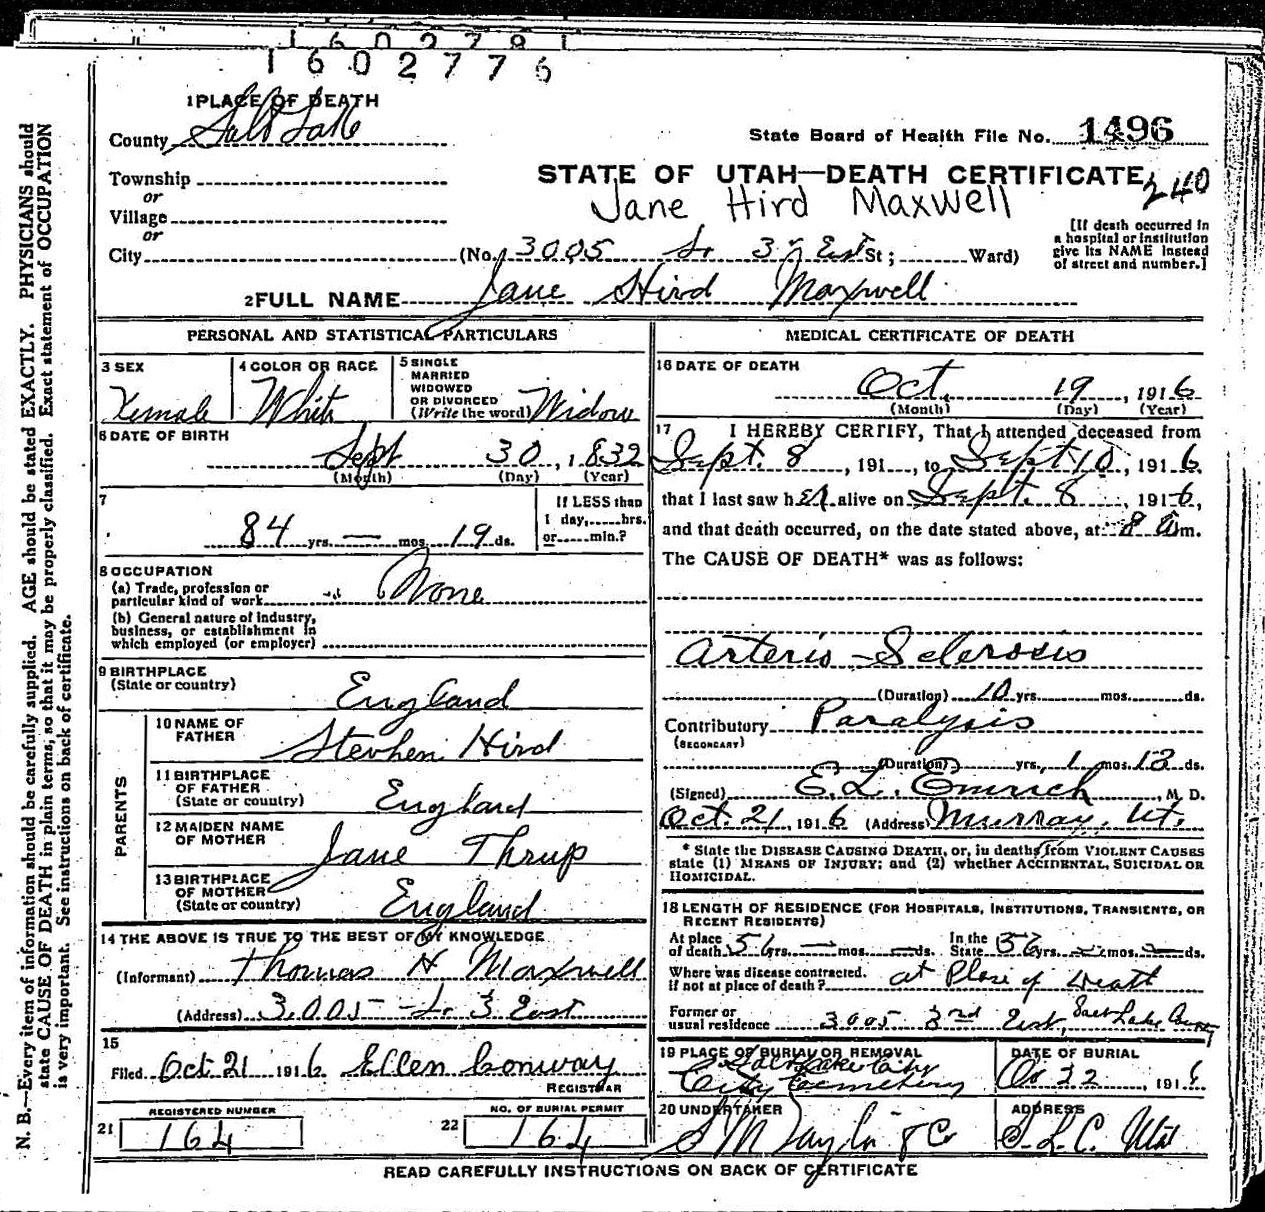 1602791
1602776
1 PLACE OF DEATH
County Salt Lake
State Board of Health File No. 1496
Township
or
Village
or
City
STATE OF UTAH—DEATH CERTIFICATE
240
Jane Hird Maxwell
[If death occurred in
a hospital or institution
give its NAME instead
of street and number.]
(No. 3005 So. 3rd East St; Ward)
2 FULL NAME Jane Hird Maxwell
PERSONAL AND STATISTICAL PARTICULARS
3 SEX
Female
4 COLOR OR RACE
White
5 SINGLE
MARRIED
WIDOWED
OR DIVORCED
(Write the word) Widow
6 DATE OF BIRTH
Sept 30, 1832
(Month) (Day) (Year)
7
84 yrs. — mos. 19 ds.
If LESS than
1 day, hrs.
or min.?
8 OCCUPATION
(a) Trade, profession or
particular kind of work None
(b) General nature of industry,
business, or establishment in
which employed (or employer)
9 BIRTHPLACE
(State or country)
England
PARENTS
10 NAME OF
FATHER
Stephen Hird
11 BIRTHPLACE
OF FATHER
(State or country) England
12 MAIDEN NAME
OF MOTHER
Jane Thrup
13 BIRTHPLACE
OF MOTHER
(State or country) England
14 THE ABOVE IS TRUE TO THE BEST OF MY KNOWLEDGE
(Informant) Thomas H Maxwell
(Address) 3005 So. 3 East
15
Filed Oct 21 1916 Ellen Conway
REGISTRAR
REGISTERED NUMBER
21 164
NO. OF BURIAL PERMIT
22 164
MEDICAL CERTIFICATE OF DEATH
16 DATE OF DEATH
Oct. 19, 1916
(Month) (Day) (Year)
17 I HEREBY CERTIFY, That I attended deceased from
Sept. 8, 191, to Sept 10, 1916
that I last saw her alive on Sept. 8, 1916,
and that death occurred, on the date stated above, at 8 a m.
The CAUSE OF DEATH* was as follows:
Arterio-Sclerosis
(Duration) 10 yrs. mos. ds.
Contributory Paralysis
(SECONDARY)
(Duration) yrs. 1 mos. 13 ds.
(Signed) E. L. Emrich, M. D.
Oct. 21, 1916 (Address) Murray, Ut.
* State the DISEASE CAUSING DEATH, or, in deaths from VIOLENT CAUSES
state (1) MEANS OF INJURY; and (2) whether ACCIDENTAL, SUICIDAL OR
HOMICIDAL.
18 LENGTH OF RESIDENCE (FOR HOSPITALS, INSTITUTIONS, TRANSIENTS, OR
RECENT RESIDENTS)
At place
of death 56 yrs. — mos. — ds.
In the
State 56 yrs. — mos. — ds.
Where was disease contracted.
if not at place of death? at Place of Death
Former or
usual residence 3005 3rd East, Salt Lake County
19 PLACE OF BURIAL OR REMOVAL
Salt Lake City
City Cemetery
DATE OF BURIAL
Oct 22, 1916
20 UNDERTAKER
S M Taylor & Co
ADDRESS
S. L. C. Utah
READ CAREFULLY INSTRUCTIONS ON BACK OF CERTIFICATE
N. B.—Every item of information should be carefully supplied. AGE should be stated EXACTLY. PHYSICIANS should
state CAUSE OF DEATH in plain terms, so that it may be properly classified. Exact statement of OCCUPATION
is very important. See instructions on back of certificate.